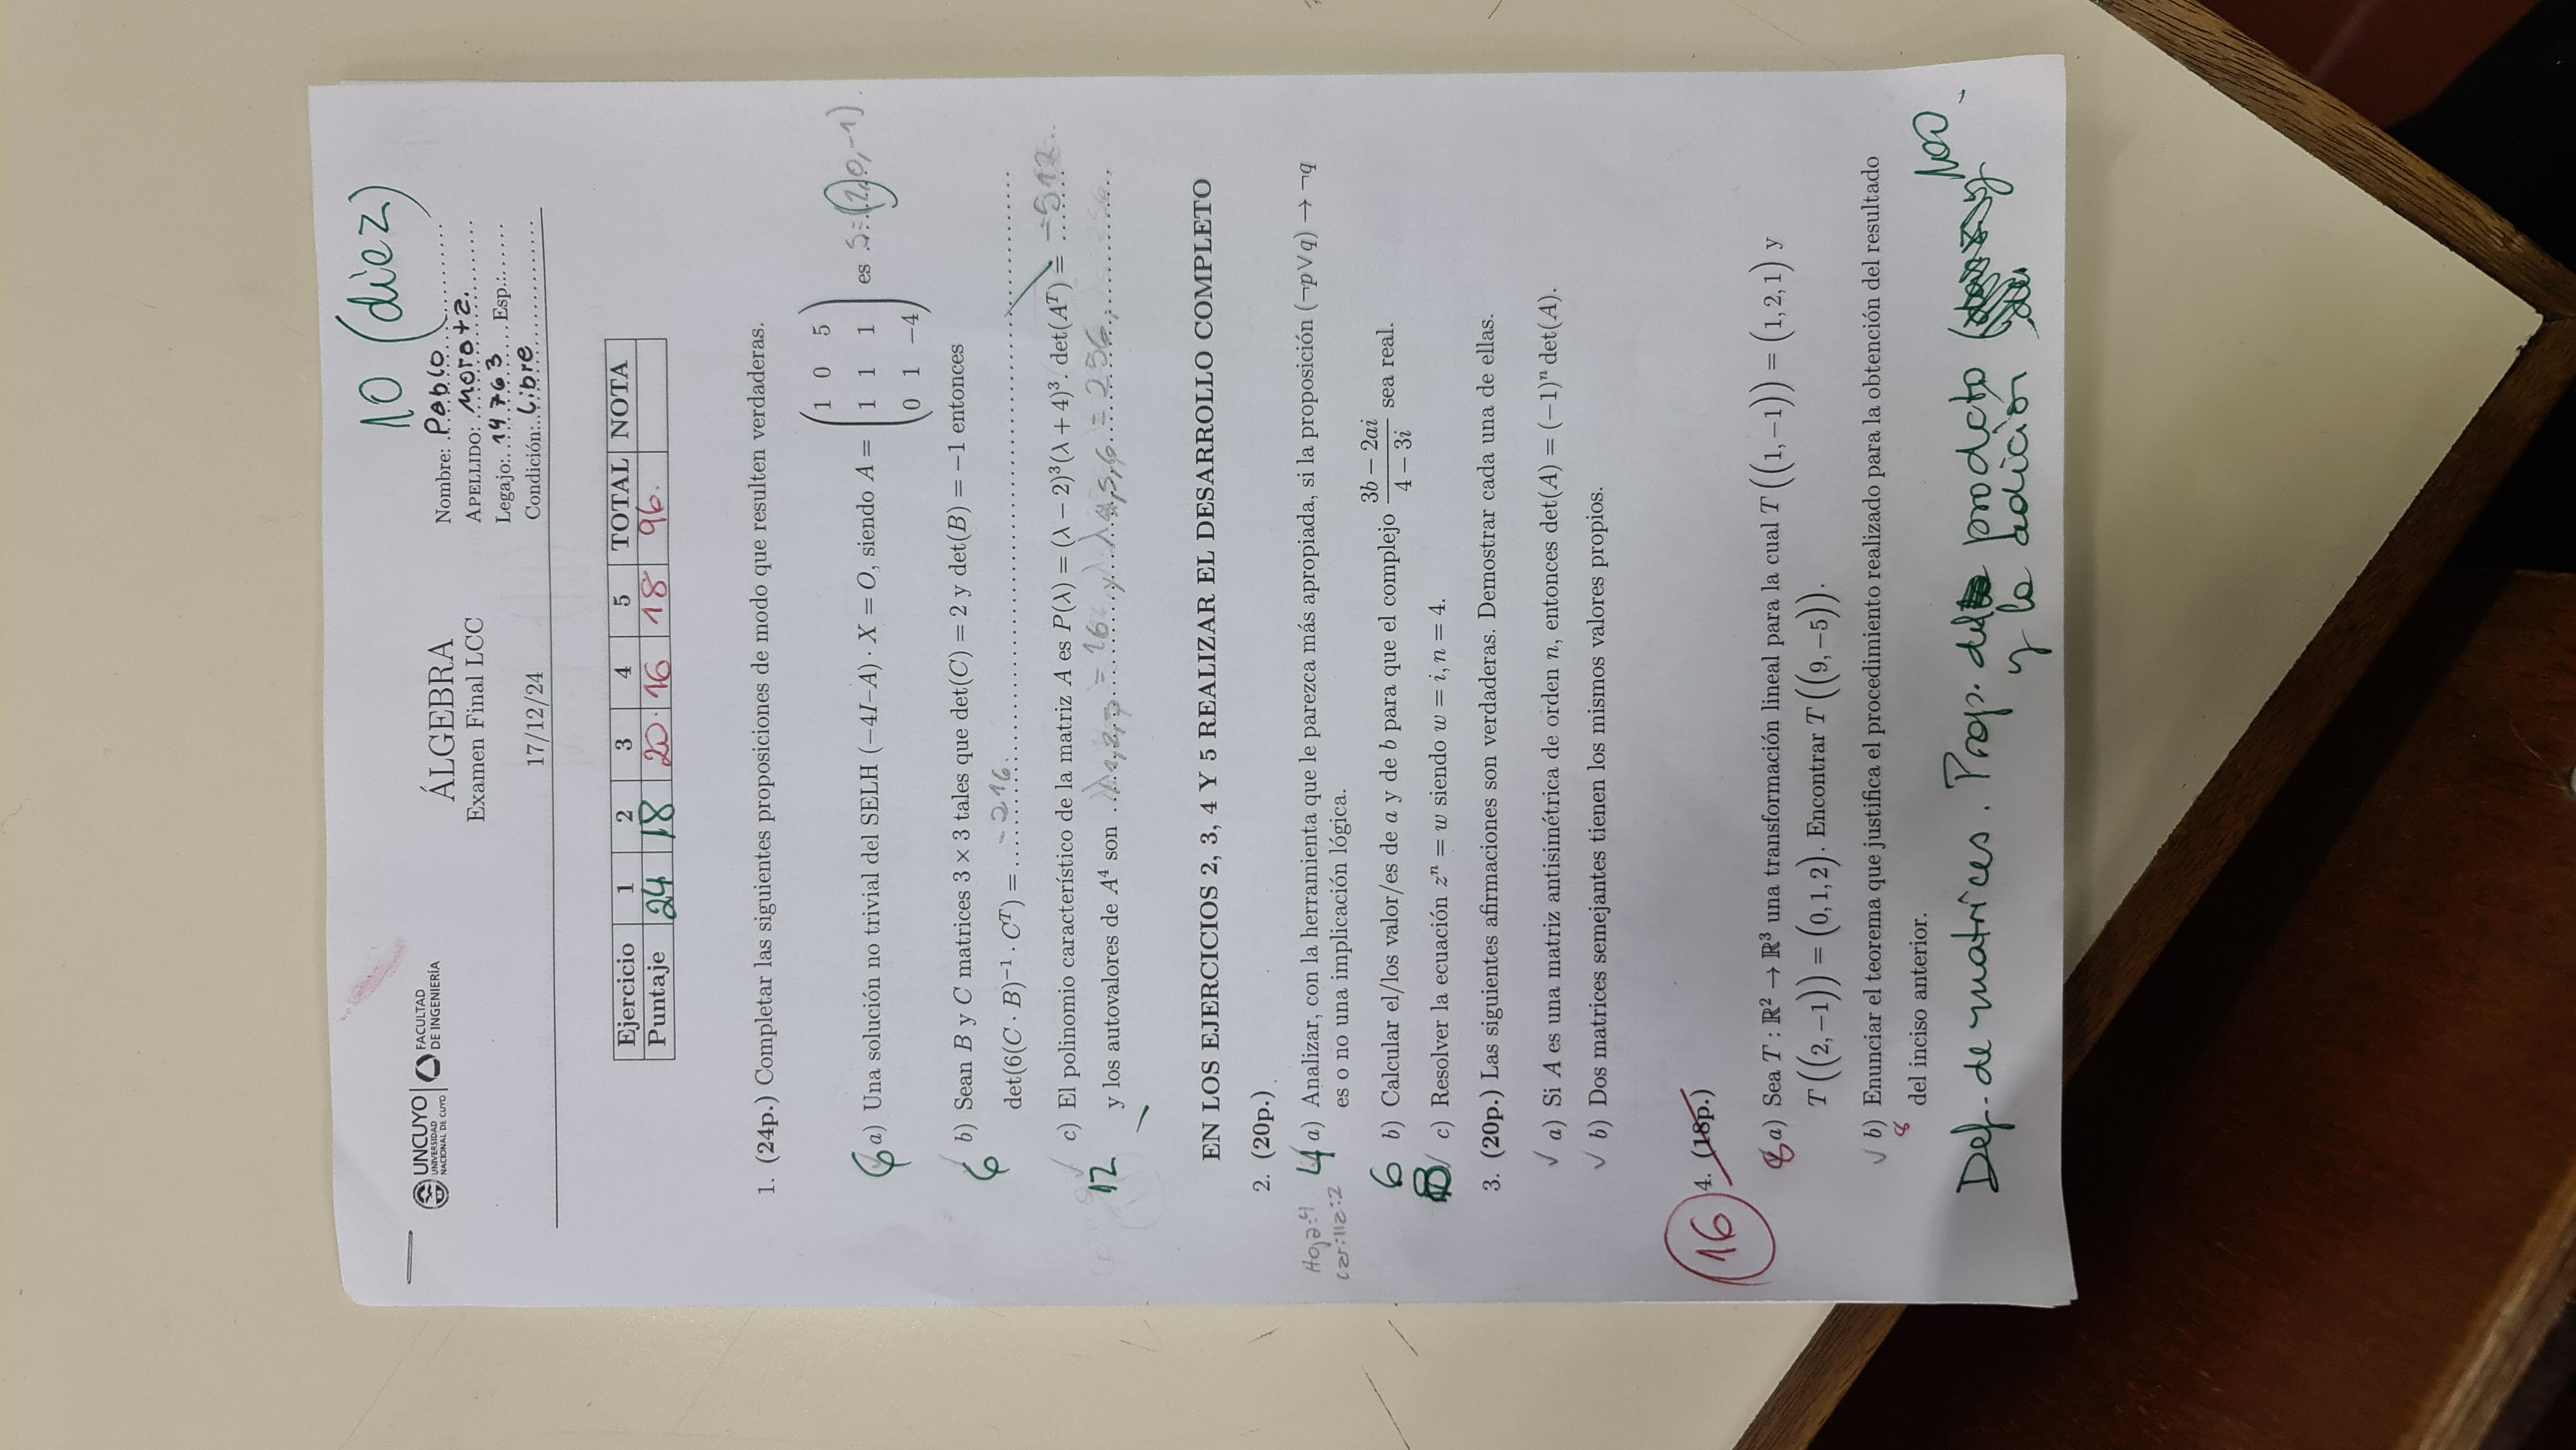 10 (diez)
UNCUYO
UNIVERSIDAD
NACIONAL DE CUYO
FACULTAD
DE INGENIERÍA
ÁLGEBRA
Examen Final LCC
17/12/24
Nombre: Pablo
APELLIDO: Morata.
Legajo: 14763 Esp.:
Condición: Libre
Ejercicio 1 2 3 4 5 TOTAL NOTA
Puntaje 24 18 20 16 18 96.
1. (24p.) Completar las siguientes proposiciones de modo que resulten verdaderas.
6 a) Una solución no trivial del SELH (−4I−A) · X = O, siendo A = (1 0 5; 1 1 1; 0 1 −4) es S=(1,0,-1).
6 b) Sean B y C matrices 3 × 3 tales que det(C) = 2 y det(B) = −1 entonces
det(6(C · B)⁻¹ · Cᵀ) = -216.
c) El polinomio característico de la matriz A es P(λ) = (λ − 2)³(λ + 4)³. det(Aᵀ) = -512
12 y los autovalores de A⁴ son λ1,2,3 = 16 y λ4,5,6 = 256
EN LOS EJERCICIOS 2, 3, 4 Y 5 REALIZAR EL DESARROLLO COMPLETO
2. (20p.)
Hoja:4
4 a) Analizar, con la herramienta que le parezca más apropiada, si la proposición (¬p∨q) → ¬q
carilla:2
es o no una implicación lógica.
6 b) Calcular el/los valor/es de a y de b para que el complejo (3b − 2ai)/(4 − 3i) sea real.
8 c) Resolver la ecuación zⁿ = w siendo w = i, n = 4.
3. (20p.) Las siguientes afirmaciones son verdaderas. Demostrar cada una de ellas.
✓ a) Si A es una matriz antisimétrica de orden n, entonces det(A) = (−1)ⁿ det(A).
✓ b) Dos matrices semejantes tienen los mismos valores propios.
16 4. (18p.)
8 a) Sea T : ℝ² → ℝ³ una transformación lineal para la cual T((1, −1)) = (1, 2, 1) y
T((2, −1)) = (0, 1, 2). Encontrar T((9, −5)).
✓ b) Enunciar el teorema que justifica el procedimiento realizado para la obtención del resultado
8
del inciso anterior.
Def. de matrices. Prop. del prodcto
100
y la adición